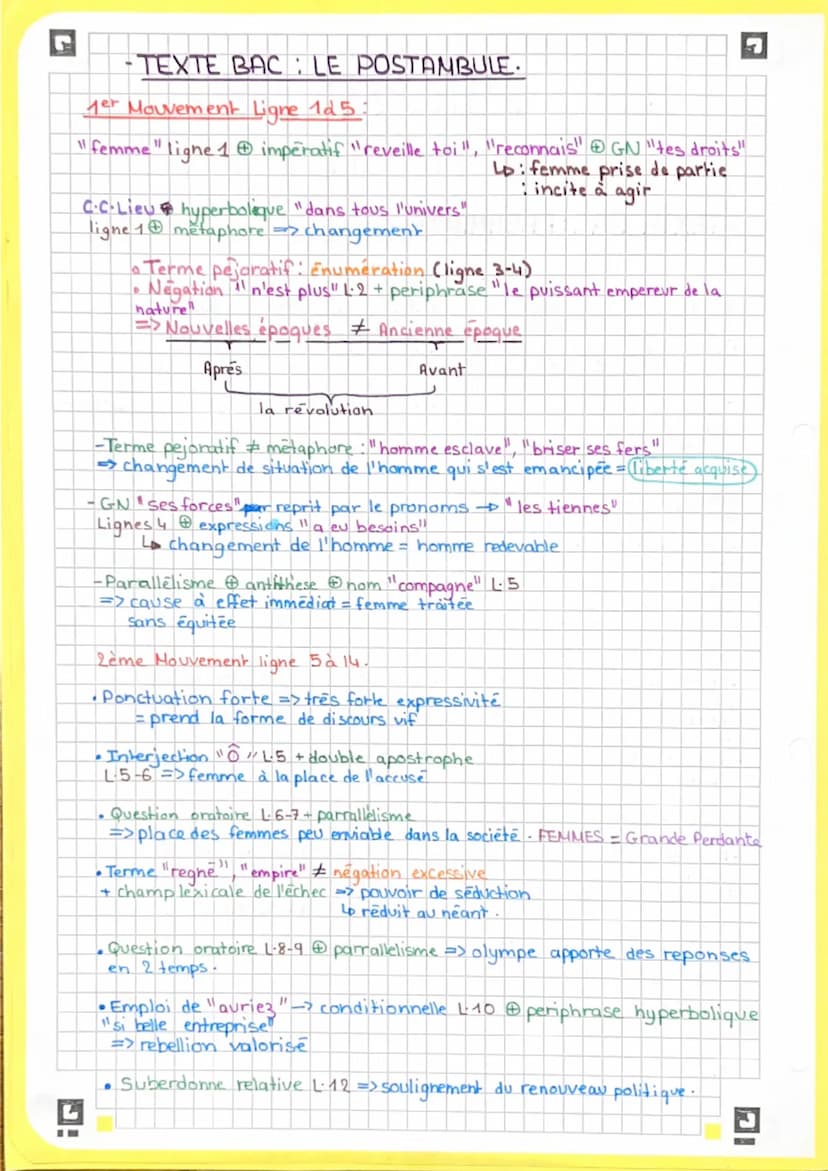 - TEXTE BAC : LE POSTAMBULE.
1er Mouvement Ligne 1à5 :
"femme" ligne 1 ⊕ impératif "reveille toi", "reconnais" ⊕ GN "tes droits"
↳ : femme prise de partie
: incite à agir
C.C.Lieu hyperbolique "dans tous l'univers"
ligne 1 ⊕ métaphore => changement
• Terme pejoratif : Énumération (ligne 3-4)
• Négation "n'est plus" L.2 + periphrase "le puissant empereur de la
nature"
=> Nouvelles époques ≠ Ancienne époque
Après Avant
la révolution
- Terme pejoratif ≠ métaphore : "homme esclave", "briser ses fers"
=> changement de situation de l'homme qui s'est emancipée = liberté acquise
- GN "ses forces" reprit par le pronoms → "les tiennes"
Lignes 4 ⊕ expressions "a eu besoins"
↳ changement de l'homme = homme redevable
- Parallélisme ⊕ antithese ⊕ nom "compagne" L.5
=> cause à effet immédiat = femme traitée
sans équitée
2ème Mouvement ligne 5 à 14.
• Ponctuation forte => très forte expressivité
= prend la forme de discours vif
• Interjection "Ô" L.5 + double apostrophe
L.5-6 => femme à la place de l'accusé
• Question oratoire L.6-7 + parrallélisme
=> place des femmes peu enviable dans la société. FEMMES = Grande Perdante
• Terme "regné", "empire" ≠ négation excessive
+ champ lexicale de l'échec => pouvoir de séduction
↳ réduit au néant.
• Question oratoire L.8-9 ⊕ parrallelisme => olympe apporte des reponses
en 2 temps.
• Emploi de "auriez" → conditionnelle L.10 ⊕ periphrase hyperbolique
"si belle entreprise"
=> rebellion valorisé
• Suberdonne relative L.12 => soulignement du renouveau politique.